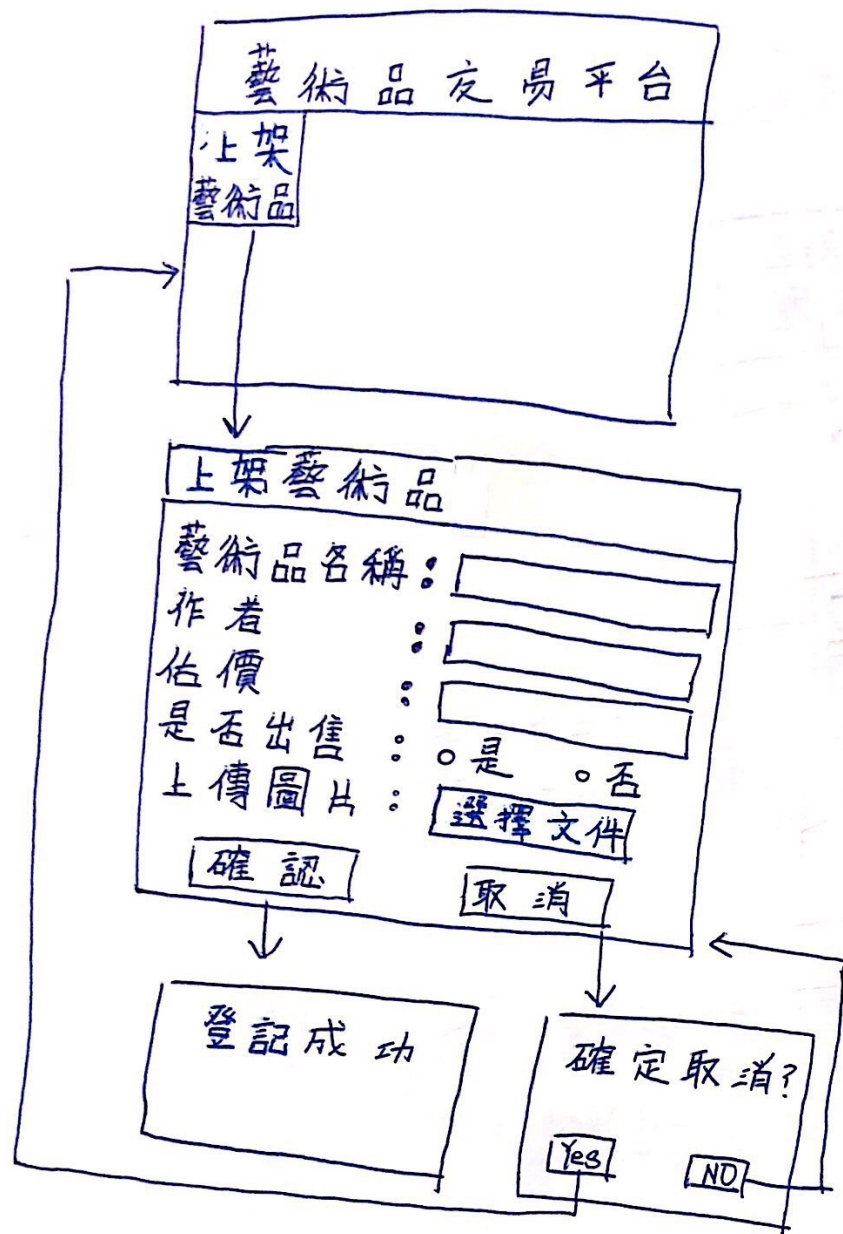 藝術品交易平台
上架
藝術品
上架藝術品
藝術品名稱：
作者：
估價：
是否出售：是 否
上傳圖片：選擇文件
確認 取消
登記成功
確定取消?
Yes NO